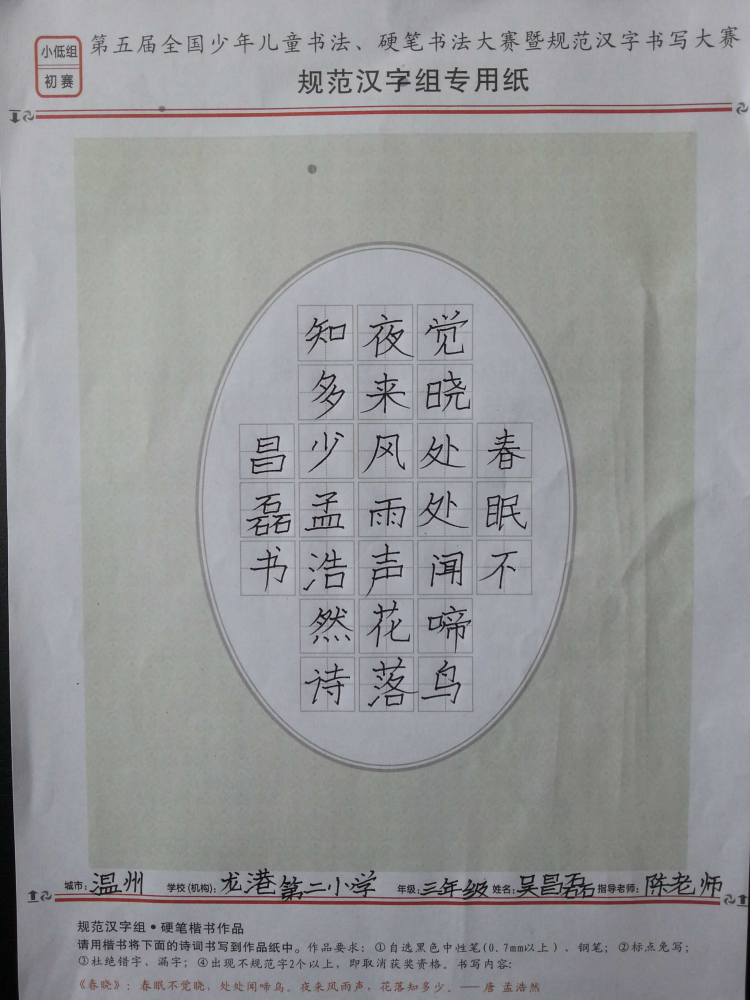 小低组
初赛
第五届全国少年儿童书法、硬笔书法大赛暨规范汉字书写大赛
规范汉字组专用纸
春眠不
觉晓处处闻啼鸟
夜来风雨声花落
知多少孟浩然诗
昌磊书
城市：温州 学校(机构)：龙港第二小学 年级：三年级 姓名：吴昌磊 指导老师：陈老师
规范汉字组•硬笔楷书作品
请用楷书将下面的诗词书写到作品纸中。作品要求：①自选黑色中性笔(0.7mm以上)、钢笔；②标点免写；
③杜绝错字、漏字；④出现不规范字2个以上，即取消获奖资格。书写内容：
《春晓》：春眠不觉晓，处处闻啼鸟。夜来风雨声，花落知多少。——唐 孟浩然